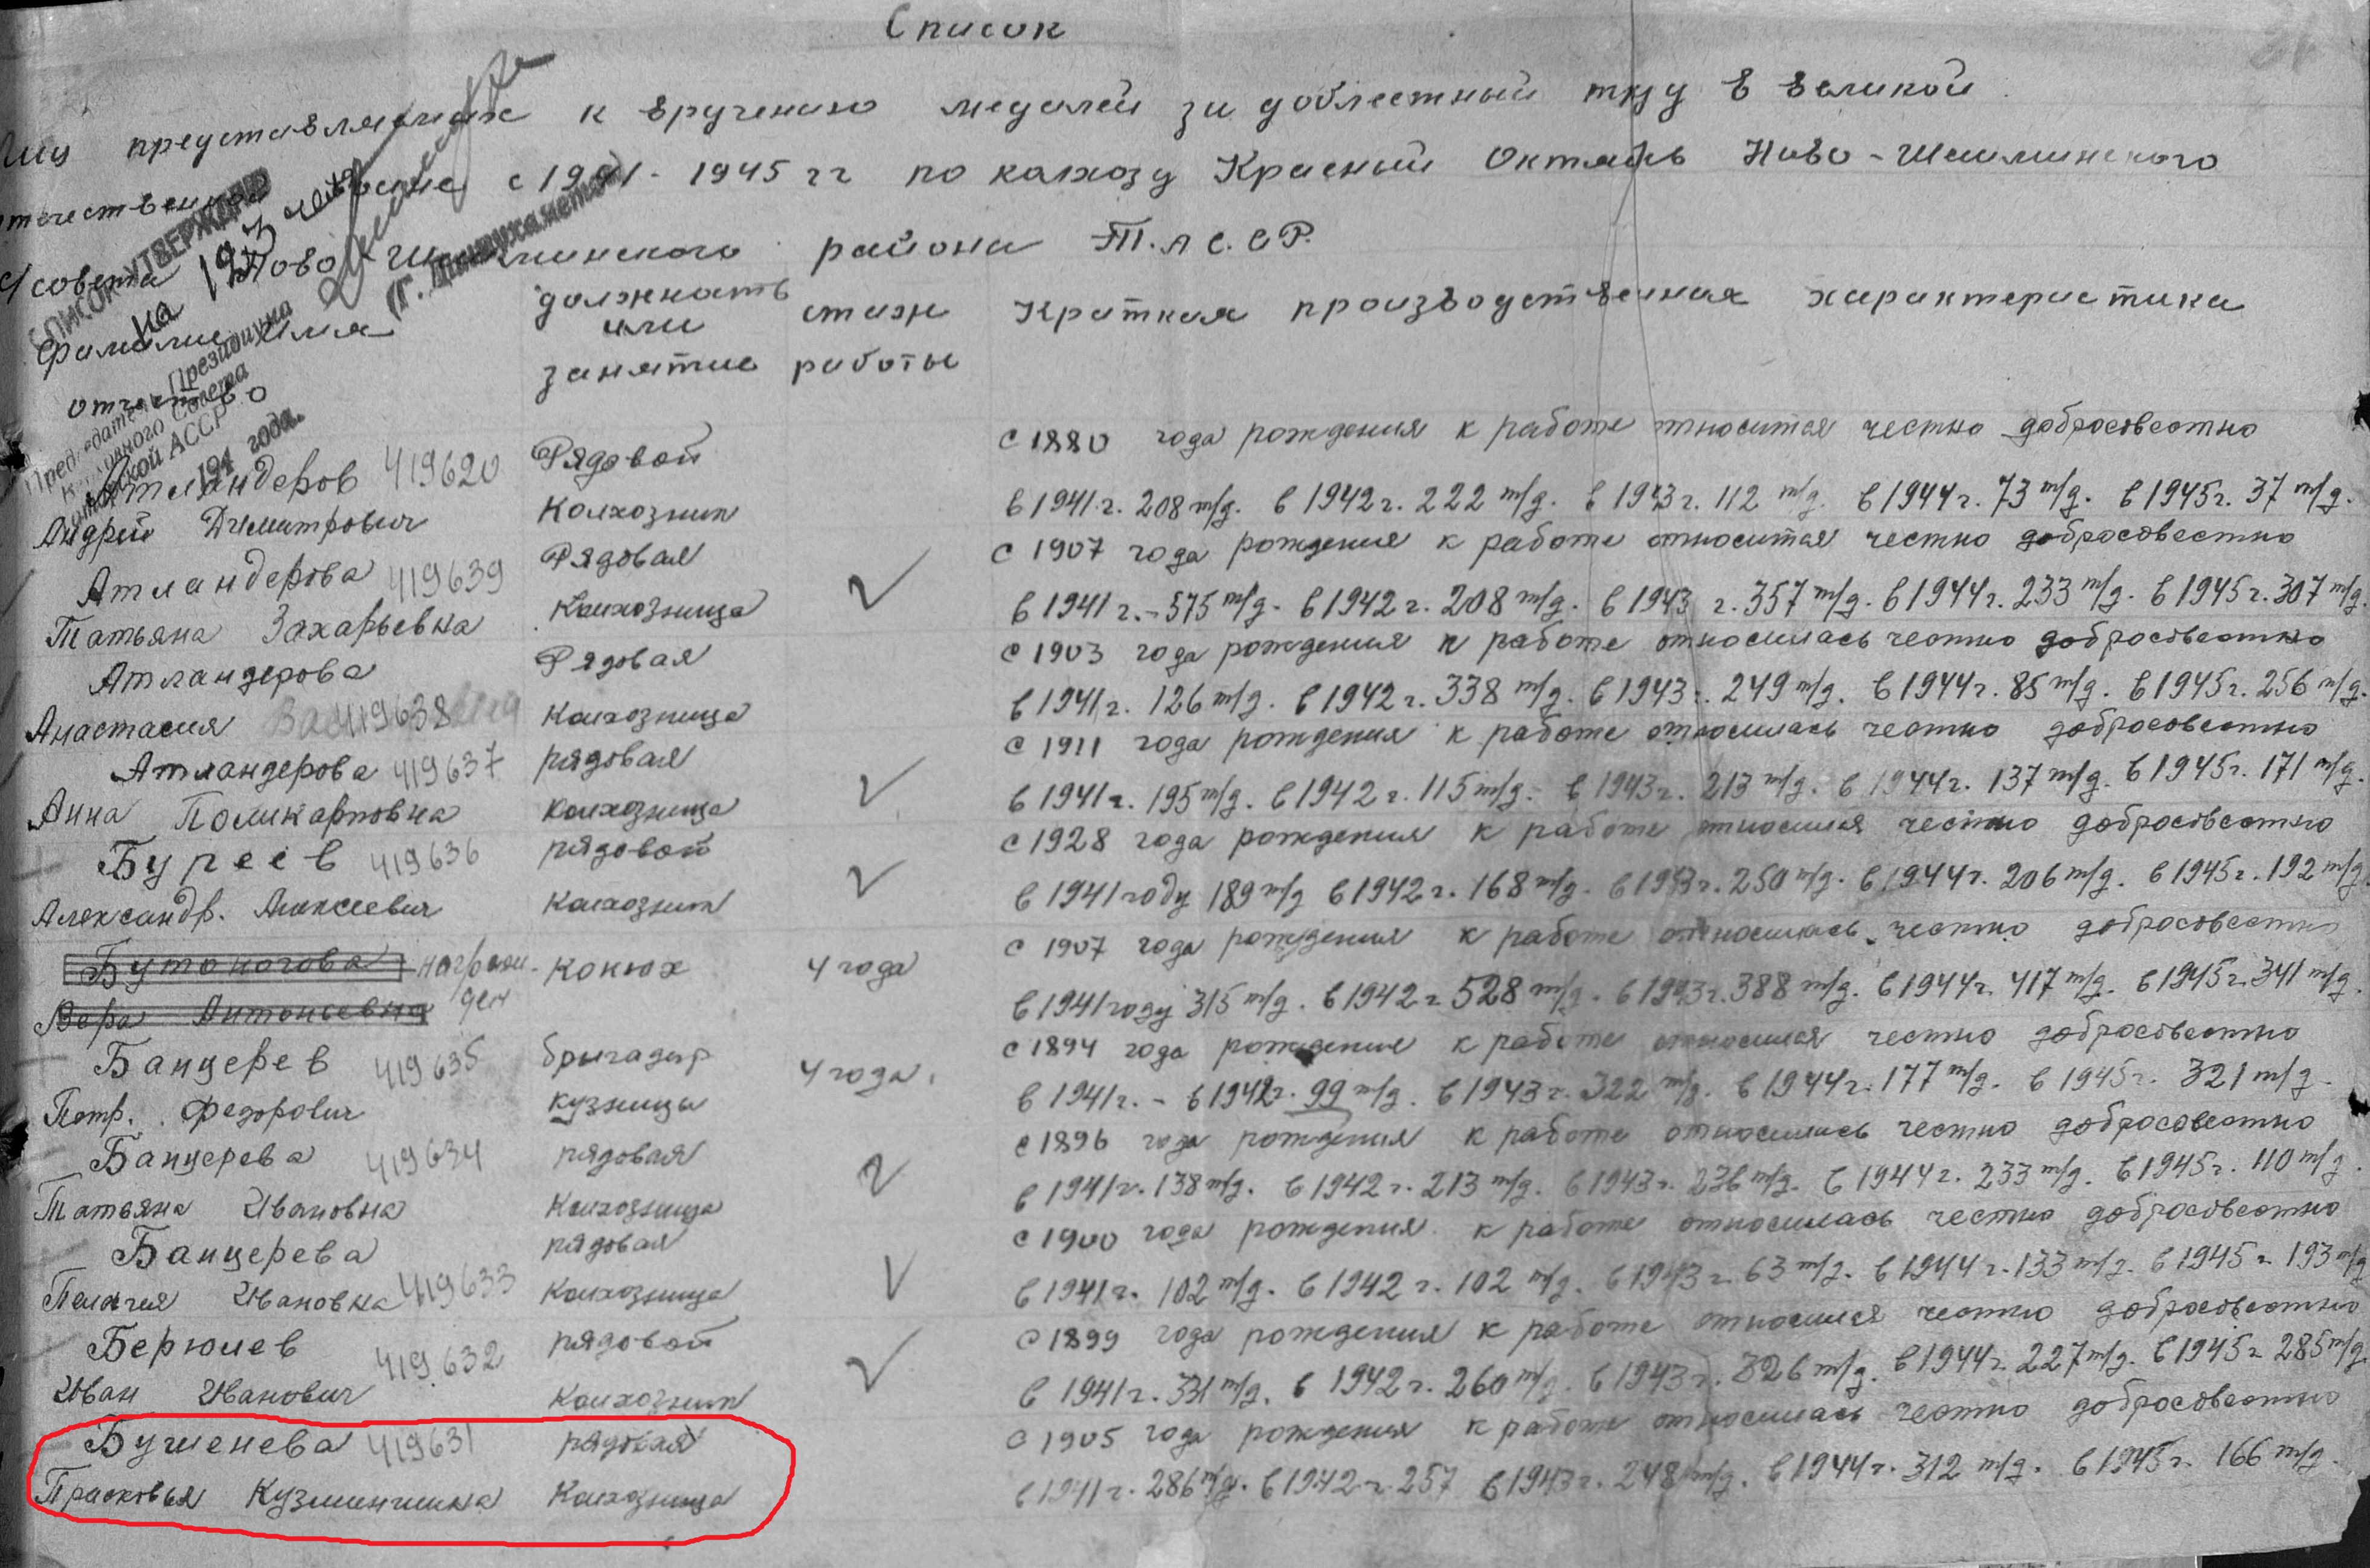 Список
Лиц представляемых к вручению медалей за доблестный труд в великой
отечественной войне с 1941-1945 гг по колхозу Красный Октябрь Ново-Шешминского
с/совета Ново-Шешминского района Т.А С.С Р.
СПИСОК УТВЕРЖДАЮ
на 193 чел.
Председатель Президиума
Верховного Совета
Татарской АССР
(Г. Динмухаметов)
194 года.
Фамилие Имя отчество
должность или занятие
стаж работы
Краткая производственная характеристика
Атландеров 419620 Рядовой с 1880 года рождения к работе относится честно добросовестно
Андрей Дмитрович Колхозник в 1941 г. 208 т/д. в 1942 г. 222 т/д. в 1943 г. 112 т/д. в 1944 г. 73 т/д. в 1945 г. 37 т/д.
Атландерова 419639 Рядовая с 1907 года рождения к работе относится честно добросовестно
Татьяна Захарьевна колхозница в 1941 г. - 575 т/д. в 1942 г. 208 т/д. в 1943 г. 357 т/д. в 1944 г. 233 т/д. в 1945 г. 307 т/д.
Атландерова Рядовая с 1903 года рождения к работе относилась честно добросовестно
Анастасия 419638 колхозница в 1941 г. 126 т/д. в 1942 г. 338 т/д. в 1943 г. 249 т/д. в 1944 г. 85 т/д. в 1945 г. 256 т/д.
Атландерова 419637 рядовая с 1911 года рождения к работе относилась честно добросовестно
Анна Поликарповна колхозница в 1941 г. 195 т/д. в 1942 г. 115 т/д. в 1943 г. 213 т/д. в 1944 г. 137 т/д. в 1945 г. 171 т/д.
Буреев 419636 рядовой с 1928 года рождения к работе относился честно добросовестно
Александр. Алексеевич колхозник в 1941 году 189 т/д в 1942 г. 168 т/д. в 1943 г. 250 т/д. в 1944 г. 206 т/д. в 1945 г. 192 т/д.
Бутоногова награжден конюх 4 года с 1907 года рождения к работе относилась честно добросовестно
Вера Антоньевна в 1941 году 315 т/д. в 1942 г 528 т/д. в 1943 г. 388 т/д. в 1944 г. 417 т/д. в 1945 г. 341 т/д.
Банцерев 419635 бригадир 4 года. с 1894 года рождения к работе относился честно добросовестно
Петр. Федорович кузницы в 1941 г. - в 1942 г. 99 т/д. в 1943 г. 322 т/д. в 1944 г. 177 т/д. в 1945 г. 321 т/д.
Банцерева 419634 рядовая с 1896 года рождения к работе относилась честно добросовестно
Татьяна Ивановна колхозница в 1941 г. 138 т/д. в 1942 г. 213 т/д. в 1943 г. 236 т/д. в 1944 г. 233 т/д. в 1945 г. 110 т/д.
Банцерева рядовая с 1900 года рождения к работе относилась честно добросовестно
Пелагея Ивановна 419633 колхозница в 1941 г. 102 т/д. в 1942 г. 102 т/д. в 1943 г. 63 т/д. в 1944 г. 133 т/д. в 1945 г 193 т/д
Берюлев 419632 рядовой с 1899 года рождения к работе относился честно добросовестно
Иван Иванович колхозник в 1941 г. 331 т/д. в 1942 г. 260 т/д. в 1943 г. 326 т/д. в 1944 г. 227 т/д. в 1945 г 285 т/д.
Бушенева 419631 рядовая с 1905 года рождения к работе относилась честно добросовестно
Прасковья Кузминична Колхозница в 1941 г. 286 т/д. в 1942 г. 257 в 1943 г. 248 т/д. в 1944 г. 312 т/д. в 1945 г. 166 т/д.